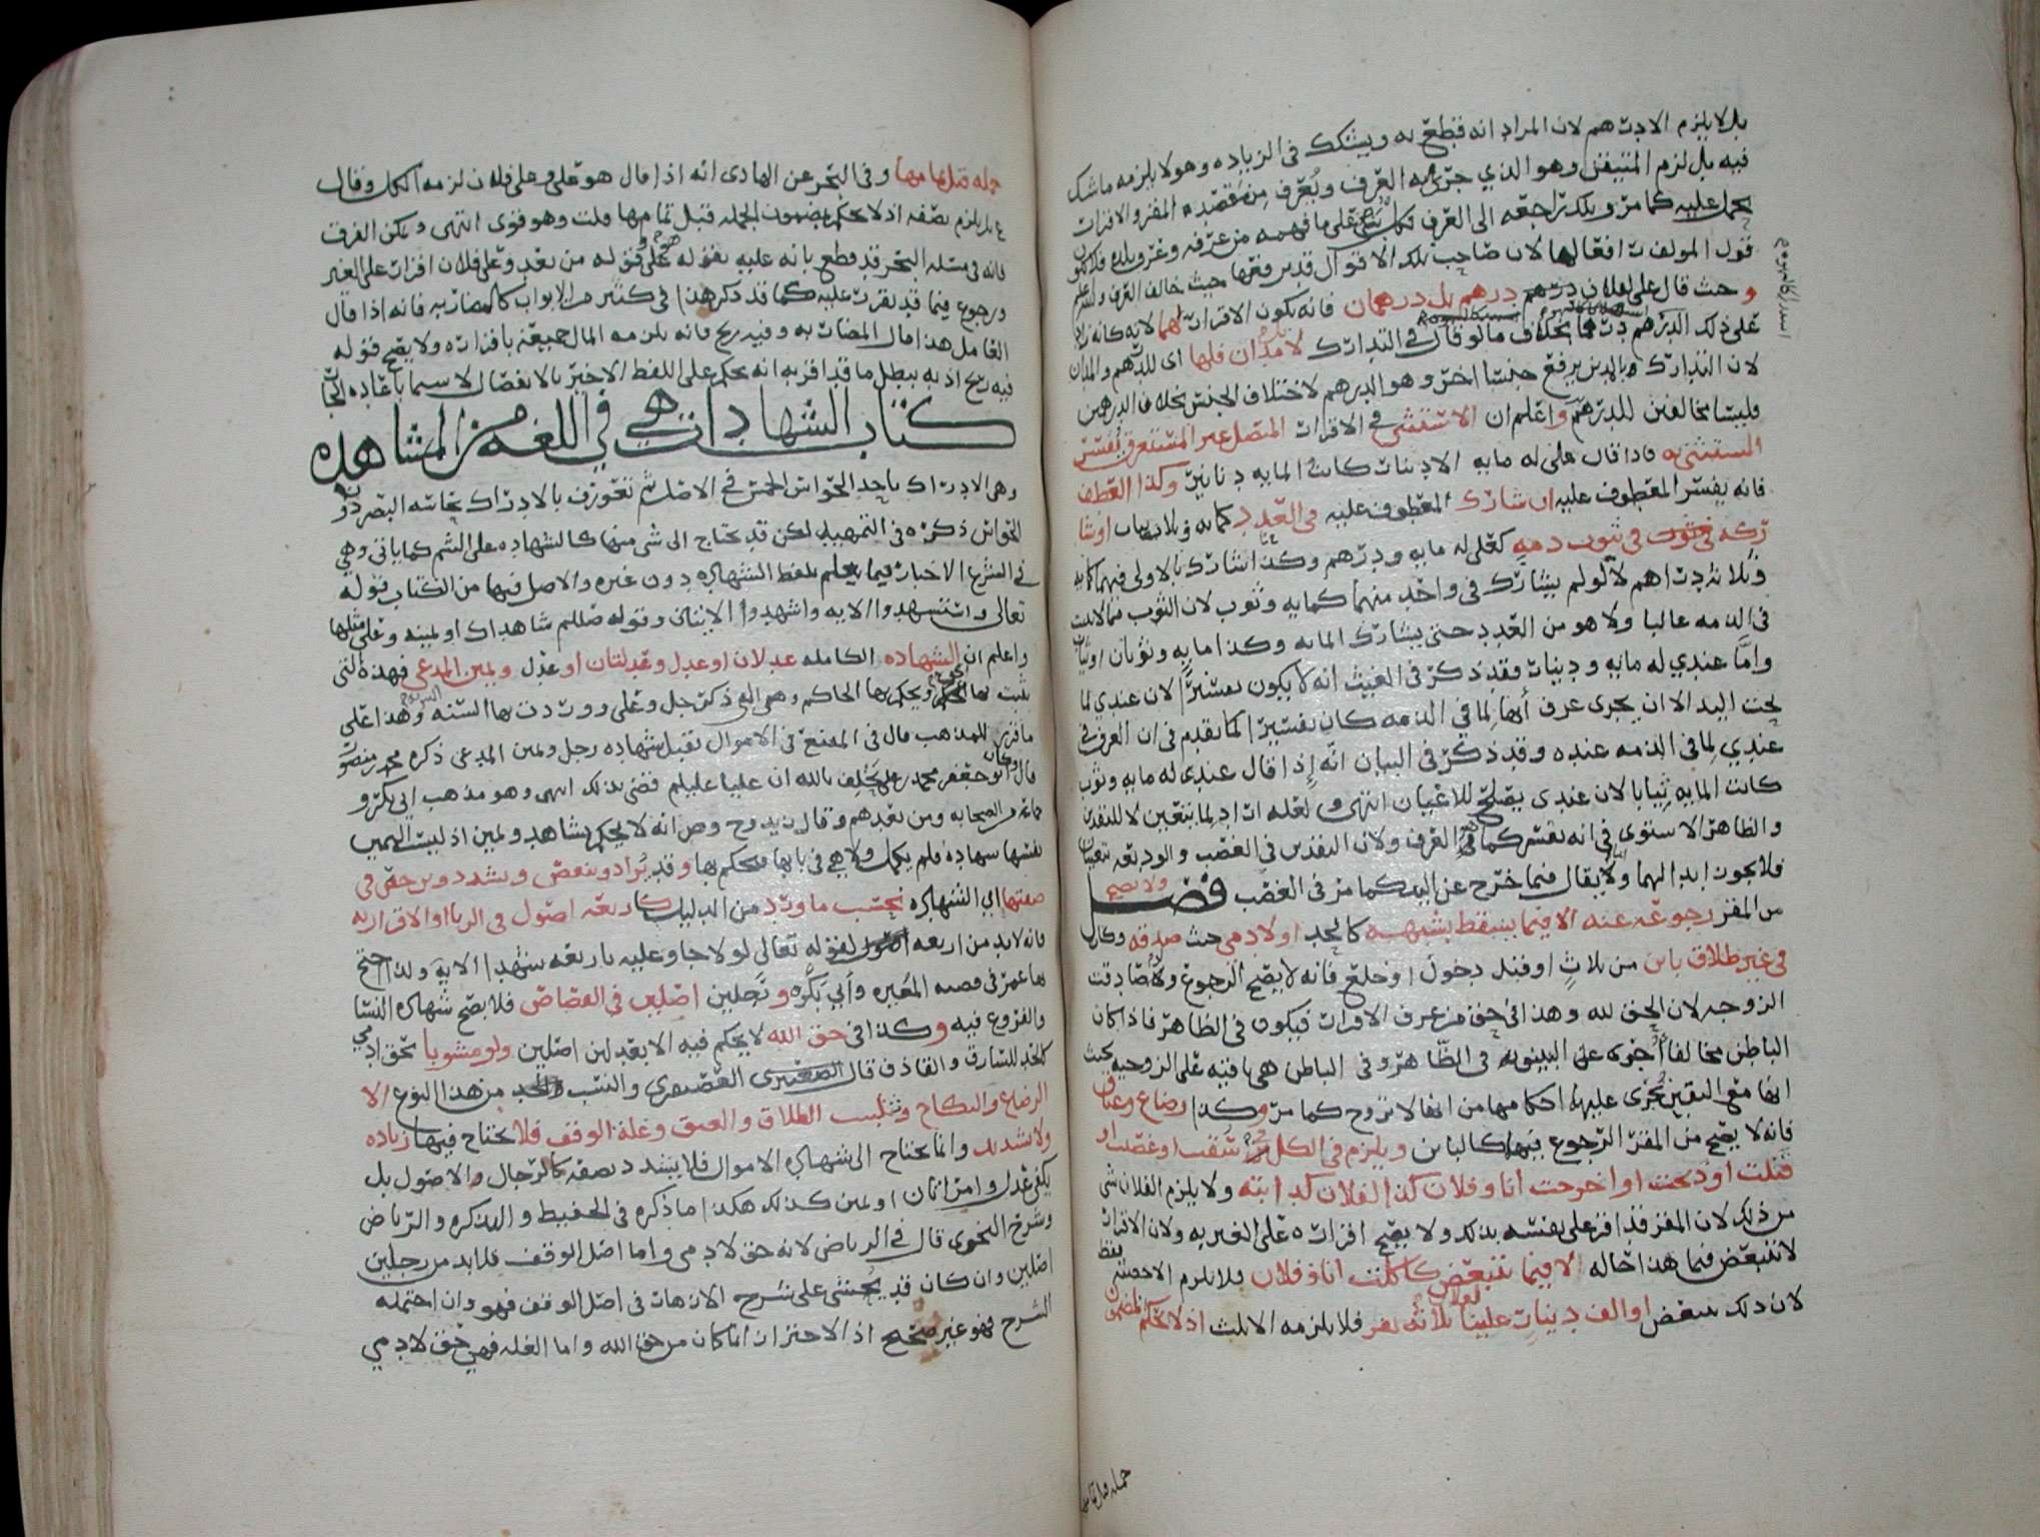 بل لا يلزم الا درهم لان المراد انه قطع به ويشكك في الزياده وهو لا يلزمه ما شك
فيه بل لزم المتيقن وهو الذي جرى به العرف ويُعرف من مقصد المقر والاقرار
يحمل عليه كما مر وبذلك تراجعه الى العرف على ما فهمه من عرفه وعرف بلده
قول المولف لان صاحب تلك الاقوال قد يرفعها حيث خالف العرف والله اعلم
وحيث قال علي لفلان درهم بل درهمان فانه يكون الاقرار لهما لانه كانه زاد
على ذلك الدرهم درهما بخلاف ما لو قال في التدارك لا مدان فلها اي للدرهم والمدان
لان التدارك بالمدين يرفع جنسا اخر وهو الدرهم لاختلاف الجنس بخلاف الدرهمين
فليسا مخالفين للدرهم واعلم ان الاستثنى في الاقرار المتصل غير المستغرق يفسر
المستثنى به فاذا قال علي له مايه الا دينار كانت المايه دنانير وكذا العطف
فانه يفسر المعطوف عليه ان شارك المعطوف عليه في العدد كمايه وثلاثه اثواب او شا
ركه في ثبوت في ذمه كعلي له مايه ودرهم وكذا ان شارك بالاولى فيهما كمايه
وثلاثه دراهم لا لو لم يشارك في واحد منهما كمايه وثوب لان الثوب مما لا يثبت
في الذمه غالبا ولا هو من العدد حتى يشارك المايه وكذا مايه وثوبان او ثياب
واما عندي له مايه ودينار فقد ذكر في الغيث انه لا يكون تفسيرًا لان عندي لما
تحت اليد الا ان يجري عرف انها لما في الذمه كان تفسيرا لما تقدم في ان العرف في
عندي لما في الذمه عنده وقد ذكر في البيان انه اذا قال عندي له مايه وثوب
كانت المايه ثيابا لان عندي يصلح للاعيان انتهى ولعله اراد لما يتعين لا للنقدين
والظاهر الاستوى في انه يفسر كما في العرف ولان النقدين في الغصب والوديعه تتعينان
فلا يجوز ابدالهما ولا يقال فيما خرج عن اليد كما مر في الغصب فصل ولا يصح
من المقر رجوعه عنه الا فيما يسقط بشبهه كالحد او لادمي حيث صدقه وكان
في غير طلاق باين من ثلاثٍ او قبل دخول او خلع فانه لا يصح الرجوع ولو صادقت
الزوجه لان الحق لله وهذا في حق من عرف الاقرار فيكون في الظاهر فاذا كان
الباطن مخالفا البينونه في الظاهر وفي الباطن هي باقيه على الزوجيه بحيث
انها مع اليقين يُجرى عليها احكامها من انها لا تزوج كما مر وكذا رضاع وعتاق
فانه لا يصح من المقر الرجوع فيها كالباين ويلزم في الكل من سقت او غصبت او
قتلت او ذبحت او اخرجت انا وفلان كذا لفلان كدابته ولا يلزم الفلان شي
من ذلك لان المقر قد اقر على نفسه بذلك ولا يصح اقراره على الغير به ولان الاقرار
لا يتبعض فيما هذا حاله الا فيما يتبعض كاكلت انا وفلان فلا يلزم الا حصته فقط
لان ذلك يتبعض او الف دينار علينا لفلان ثلاثه نفر فلا يلزمه الا ثلث اذ لا يحكم بمضمون
جمله قبل تمامها وفي البحر عن الهادي انه اذا قال هو علي وعلى فلان لزمه الكل وقال
ع بل يلزم نصفه اذ لا يحكم بمضمون الجمله قبل تمامها قلت وهو قوي انتهى ويمكن الفرق
فانه في مسئله البحر قد قطع بانه عليه بقوله هو علي وقوله من بعد وعلى فلان اقرار على الغير
ورجوع فيما قد تقرر عليه كما قد ذكر هذا في كثير من الابواب كالمضاربه فانه اذا قال
العامل هذا مال المضاربه وفيه ربح فانه يلزمه المال جميعه باقراره ولا يصح قوله
فيه ربح اذ به يبطل ما قد اقر به انه يحكم على اللفظ الاخير بالانفصال لا سيما
كتاب الشهادات هي في اللغه من المشاهده
وهي الادراك باحد الحواس الخمس في الاصل ثم تعورف بالادراك بحاسه البصر دون
الحواس ذكره في التمهيد لكن قد يحتاج الى شي منها كالشهاده على الشم كما ياتي وهي
في الشرع الاخبار فيما يعلم بلفظ الشهاده دون غيره والاصل فيها من الكتاب قوله
تعالى واستشهدوا الايه واشهدوا الايتان وقوله صللم شاهداك او يمينه وعلى مثلها
واعلم ان الشهاده الكامله عدلان او عدل وعدلتان او عدل ويمين المدعي فهذه التي
يثبت بها الحكم ويحكم بها الحاكم وهي التي ذكر جل وعلى ووردت بها السنه وهذا على
ما قرر للمذهب قال في المقنع في الاموال تقبل شهاده رجل ويمين المدعي ذكره محمد بن منصور
قال ابو جعفر محمد بن علي يحلف بالله ان عليا عليلم قضى بذلك انتهى وهو مذهب ابي بكر و
جماعه من الصحابه ومن بعدهم وقال زيد وح وص انه لا يحكم بشاهد ويمين اذ ليست اليمين
نفسها شهاده فلم يكمل ولا هي في بابها فيحكم بها وقد يُزاد وينقص ويشدد ويرخص في
صفتها اي الشهاده بحسب ما ورد من الدليل كاربعه اصول في الزنا او الاقرار به
فانه لا بد من اربعه اصول لقوله تعالى لولا جاوا عليه باربعه شهدا الايه ولذا احتج
بها عمر في قصه المغيره وأبي بكره ورجلين اصلين في القصاص فلا يصح شهاده النسا
والفروع فيه وكذا في حق الله لا يحكم فيه الا بعدلين اصلين ولو مشوبا بحق ادمي
كالحد للسارق والقاذف قال الصعيتري القصيري والنسب والحد من هذا النوع الا
الرضاع والنكاح وتثليث الطلاق والعتق وغله الوقف فلا يحتاج فيها زياده
ولا تشديد وانما يحتاج الى شهاده الاموال فلا يشدد بصفه كالرجال والاصول بل
يكفي عدل وامراتان او يمين كذلك هكذا ما ذكره في الحفيظ والتذكره والرياض
وشرح النحوي قال في الرياض لانه حق لادمي واما اصل الوقف فلا بد من رجلين
اصلين وان كان قد يُحشى على شرح الازهار في اصل الوقف فهو وان احتمله
الشرح فهو غير صحيح اذ الاحتراز انما كان من حق الله واما الغله فهي حق لادمي